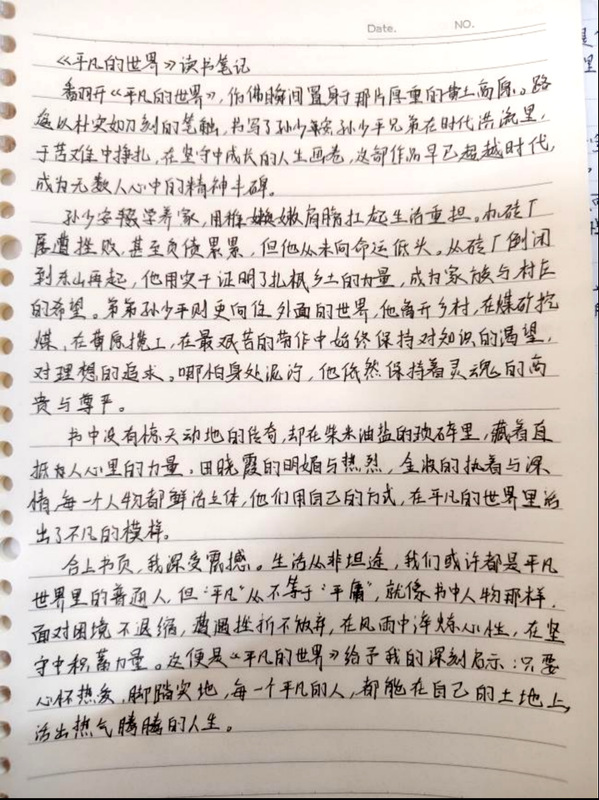 Date. NO.
《平凡的世界》读书笔记
翻开《平凡的世界》,仿佛瞬间置身于那片厚重的黄土高原。路
遥以朴实如刀刻的笔触,书写了孙少安、孙少平兄弟在时代洪流里,
于苦难中挣扎,在坚守中成长的人生画卷,这部作品早已超越时代,
成为无数人心中的精神丰碑。
孙少安辍学养家,用稚嫩肩膀扛起生活重担。办砖厂
屡遭挫败,甚至负债累累,但他从未向命运低头。从砖厂倒闭
到东山再起,他用实干证明了扎根乡土的力量,成为家族与村庄
的希望。弟弟孙少平则更向往外面的世界,他离开乡村,在煤矿挖
煤、在黄原揽工,在最艰苦的劳作中始终保持对知识的渴望,
对理想的追求。哪怕身处泥泞,他依然保持着灵魂的高
贵与尊严。
书中没有惊天动地的传奇,却在柴米油盐的琐碎里,藏着直
抵人心里的力量,田晓霞的明媚与热烈,金波的执着与深
情,每一个人物都鲜活立体,他们用自己的方式,在平凡的世界里活
出了不凡的模样。
合上书页,我深受震撼。生活从非坦途,我们或许都是平凡
世界里的普通人,但“平凡”从不等于“平庸”,就像书中人物那样,
面对困境不退缩,遭遇挫折不放弃,在风雨中淬炼心性,在坚
守中积蓄力量。这便是《平凡的世界》给予我的深刻启示:只要
心怀热爱,脚踏实地,每一个平凡的人,都能在自己的土地上,
活出热气腾腾的人生。